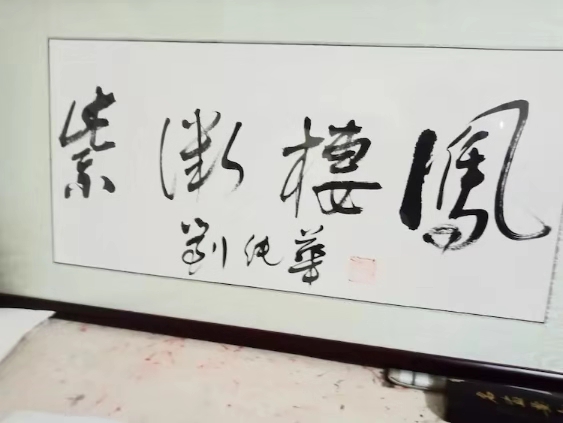 紫微棲鳳
劉純華